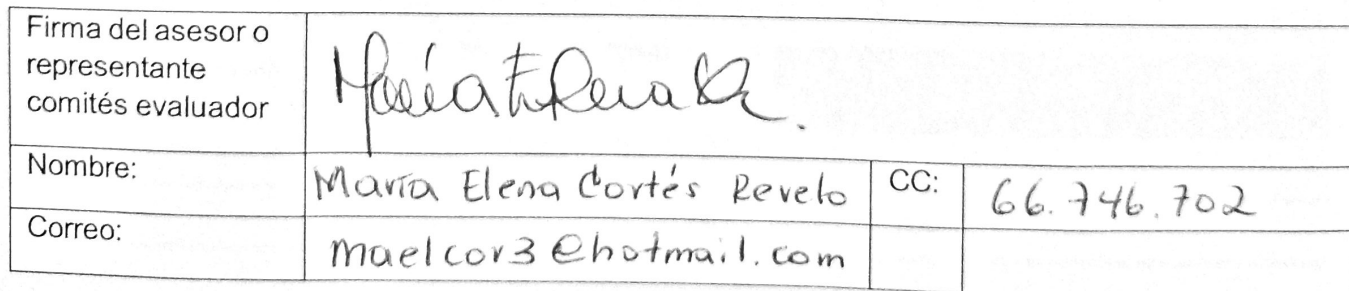 Firma del asesor o
representante
comités evaluador
Nombre: María Elena Cortés Revelo CC: 66.746.702
Correo: maelcor3@hotmail.com